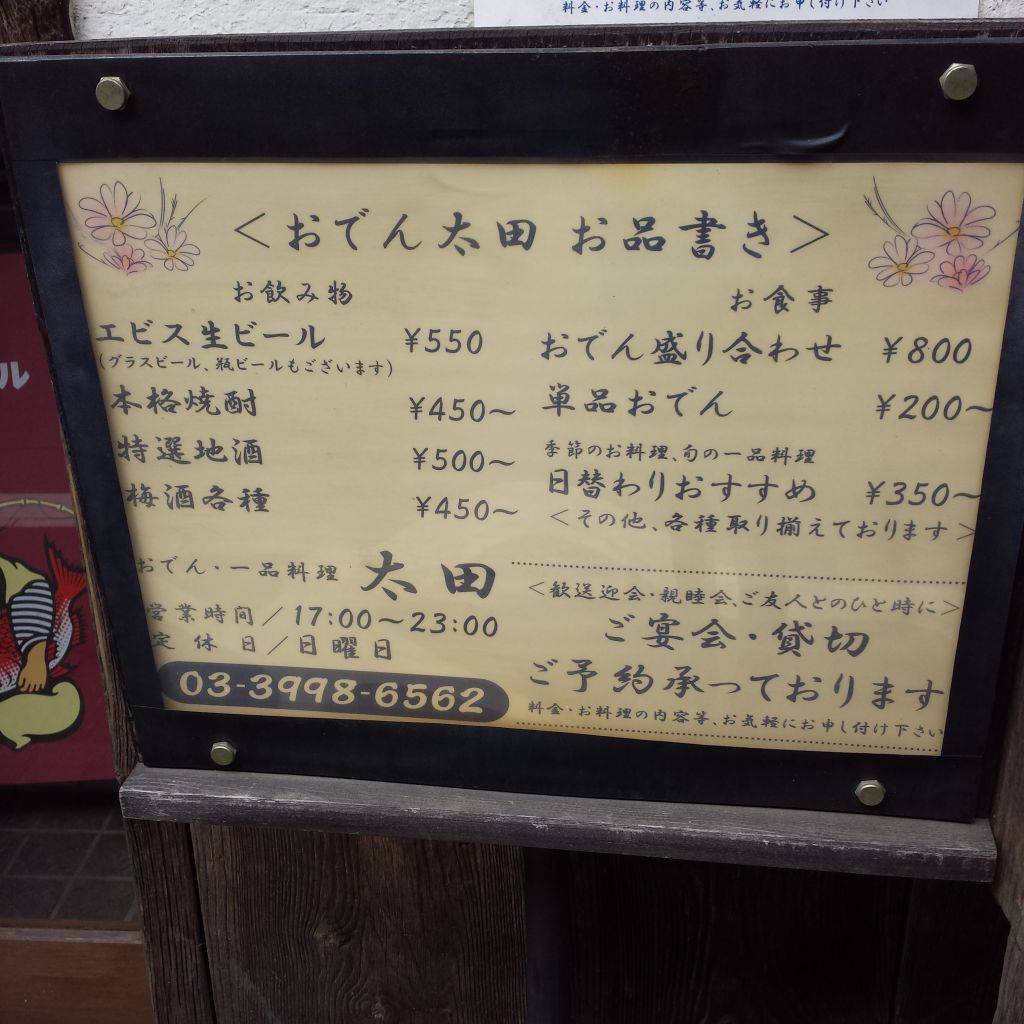 料金・お料理の内容等、お気軽にお申し付け下さい
<おでん太田 お品書き>
お飲み物
エビス生ビール ¥550
(グラスビール、瓶ビールもございます)
本格焼酎 ¥450～
特選地酒 ¥500～
梅酒各種 ¥450～
お食事
おでん盛り合わせ ¥800
単品おでん ¥200～
季節のお料理、旬の一品料理
日替わりおすすめ ¥350～
<その他、各種取り揃えております>
おでん・一品料理 太田
営業時間/17:00～23:00
定休日/日曜日
03-3998-6562
<歓送迎会・親睦会、ご友人とのひと時に>
ご宴会・貸切
ご予約承っております
料金・お料理の内容等、お気軽にお申し付け下さい
ル